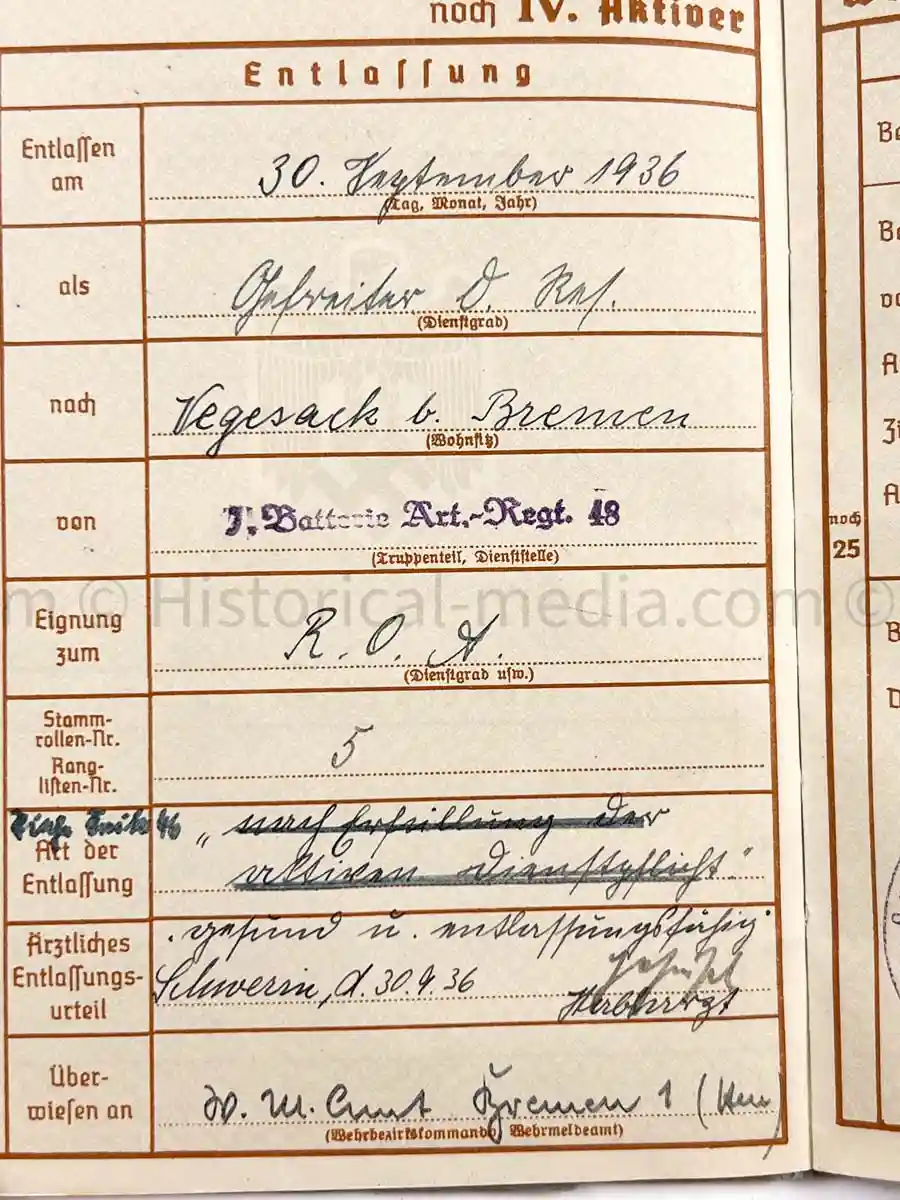 noch IV. Aktiver
Entlassung
Entlassen am
30. September 1936
(Tag, Monat, Jahr)
als
Gefreiter d. Res.
(Dienstgrad)
nach
Vegesack b. Bremen
(Wohnsitz)
von
7. Batterie Art.-Regt. 48
(Truppenteil, Dienststelle)
m © Historical-media.com ©
Eignung
zum
R. O. A.
(Dienstgrad usw.)
Stamm-
rollen-Nr.
Rang-
listen-Nr.
5
Siehe Seite 46
Art der
Entlassung
„nach Erfüllung der
aktiven Dienstpflicht"
Ärztliches
Entlassungs-
urteil
gesund u. entlassungsfähig
Schwerin, d. 30.9.36
Stabsarzt
Über-
wiesen an
W. M. Amt Bremen 1
(Wehrbezirkskommando Wehrmeldeamt)
noch
25